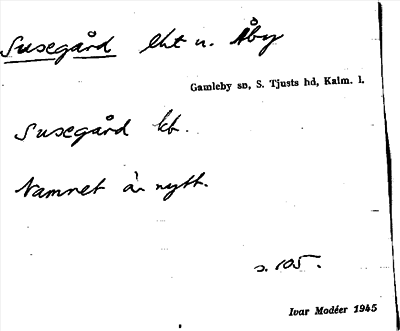 Susegård lht u. Åby
Gamleby sn, S. Tjusts hd, Kalm. l.
Susegård kb.
Namnet är nytt.
s. 105.
Ivar Modéer 1945